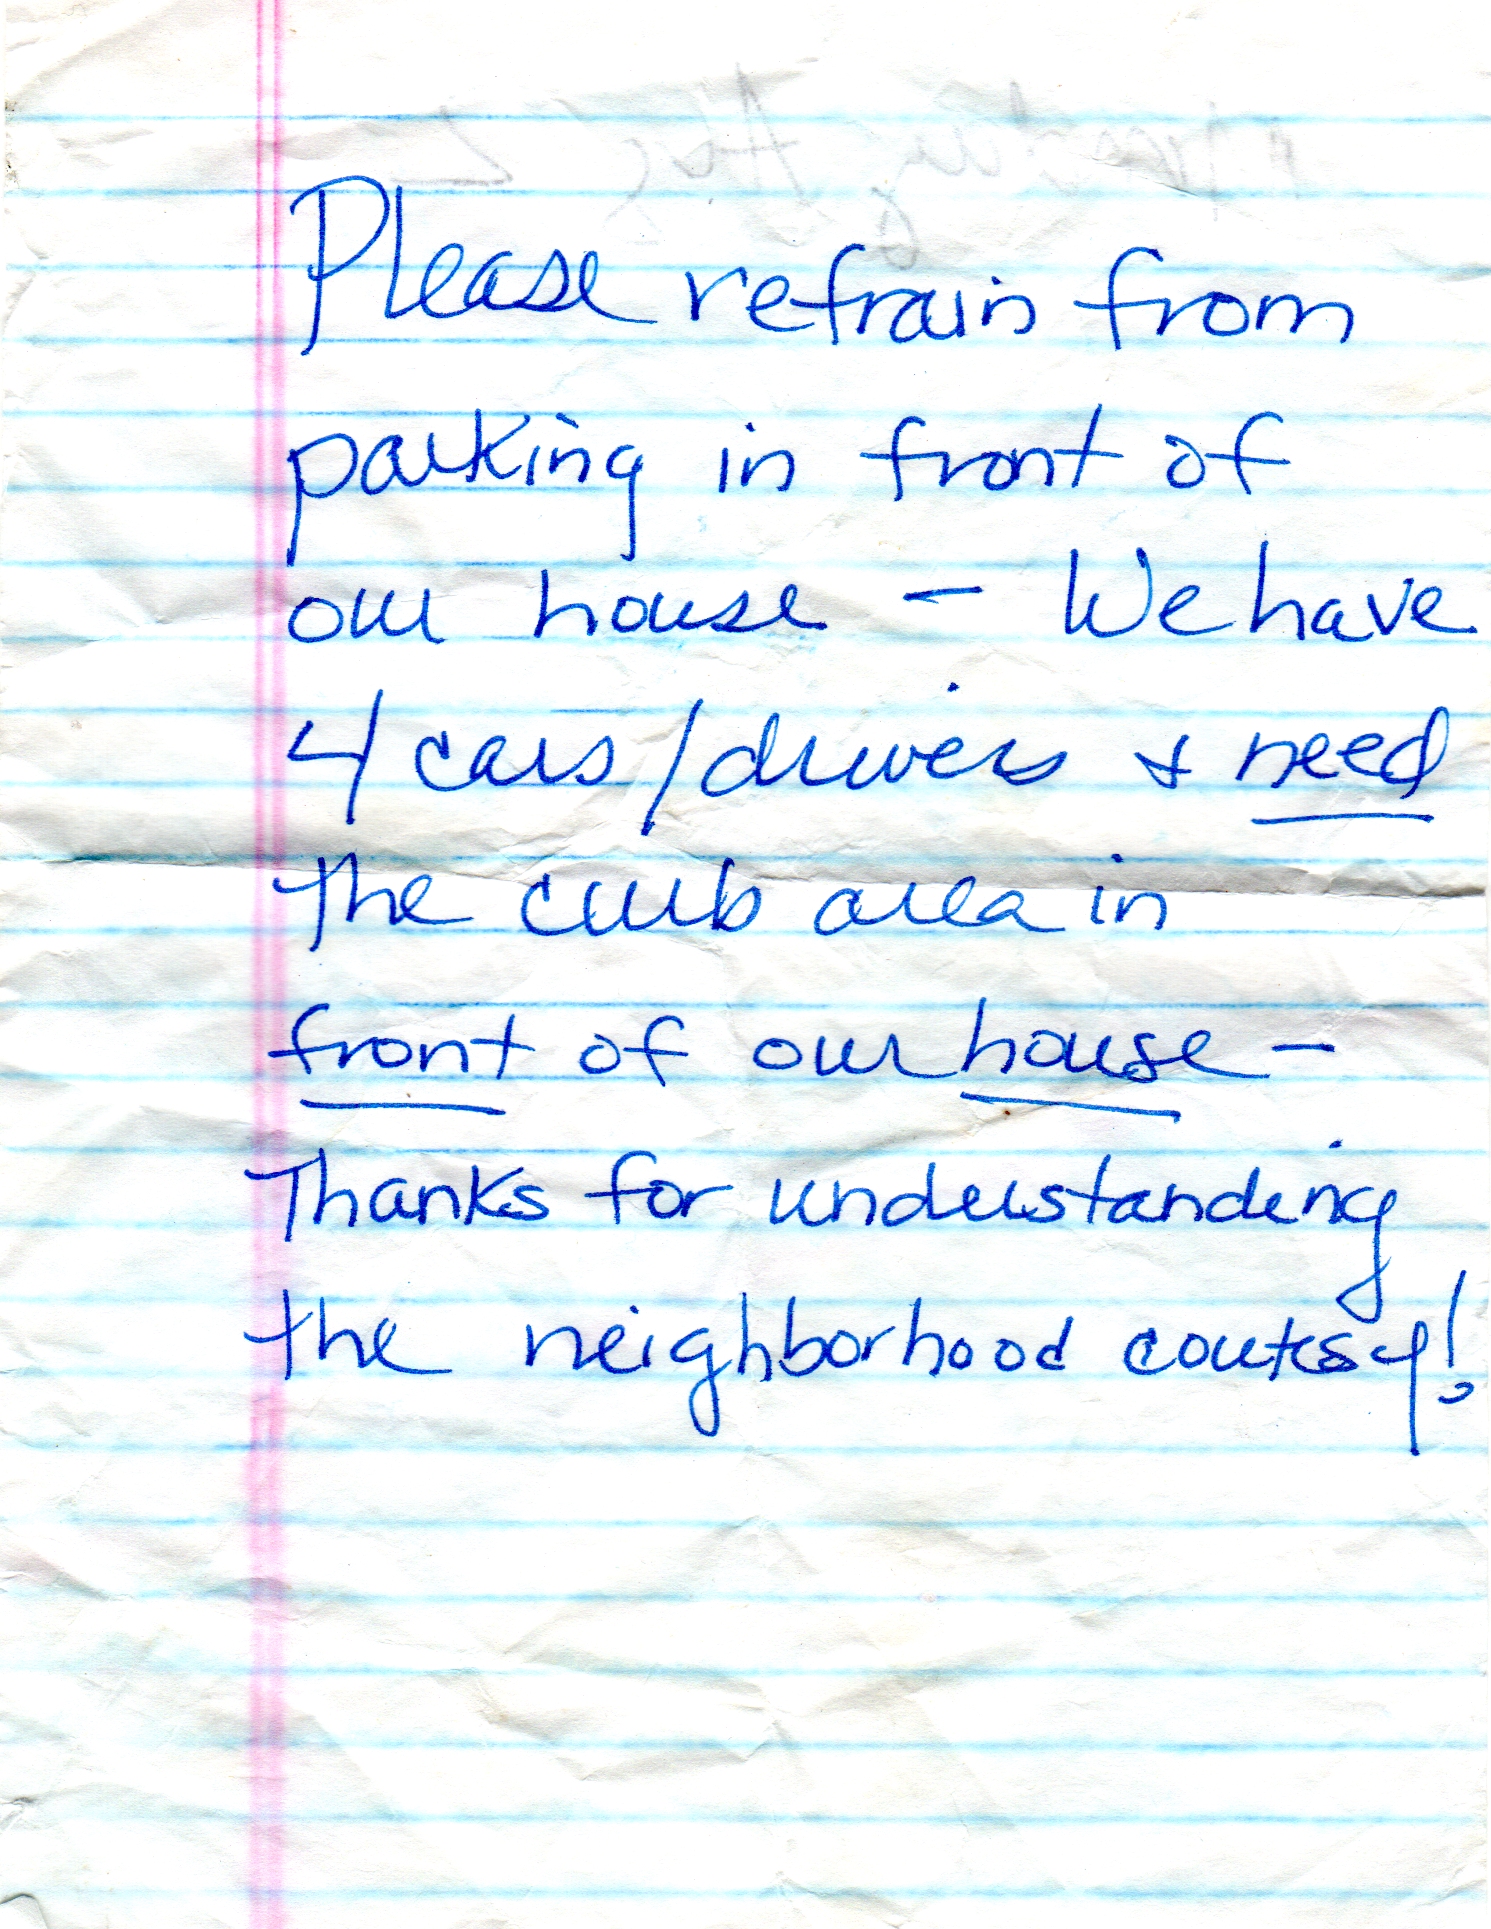 Please refrain from
parking in front of
our house - We have
4 cars/drivers & need
the curb area in
front of our house -
Thanks for understanding
the neighborhood courtesy!